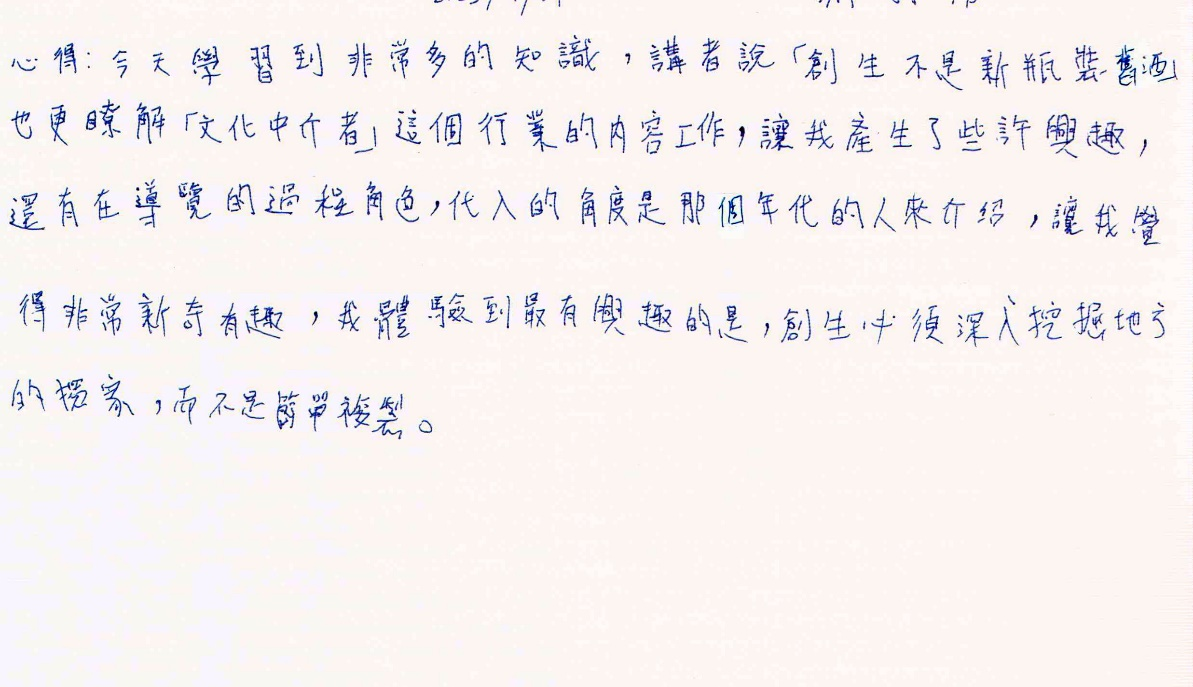 心得:今天學習到非常多的知識,講者說「創生不是新瓶裝舊酒」
也更瞭解「文化中介者」這個行業的内容工作,讓我產生了些許興趣,
還有在導覽的過程角色,代入的角度是那個年代的人來介紹,讓我覺
得非常新奇有趣,我體驗到最有興趣的是,創生必須深入挖掘地方
的,而不是簡單複製。